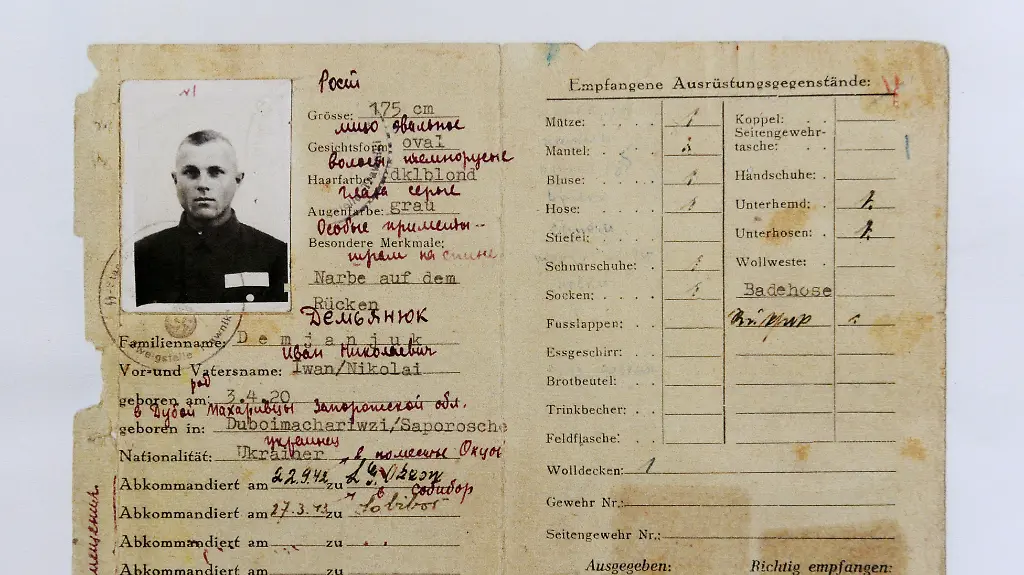 Рост
Grösse: 175 cm
лицо овальное
Gesichtsform: oval
волосы темнорусые
Haarfarbe: dklblond
глаза серые
Augenfarbe: grau
Особые приметы --
Besondere Merkmale:
шрам на спине
Narbe auf dem
Rücken
ДЕМЬЯНЮК
Familienname: Demjanjuk
Иван Николаевич
Vor-und Vatersname: Iwan/Nikolai
geboren am: 3.4.20
в Запорожской обл.
geboren in: Duboimachariwzi/Saporosche
украинец
Nationalität: Ukrainer
в поместье Окцов
Abkommandiert am 22.9.42 zu L.G. Okzow
в Собибор
Abkommandiert am 27.3.43 zu Sobibor
Abkommandiert am zu
Abkommandiert am zu
Empfangene Ausrüstungsgegenstände:
Mütze: 1
Mantel: 1
Bluse: 1
Hose: 1
Stiefel:
Schnürschuhe: 1
Socken: 1
Fusslappen:
Essgeschirr:
Brotbeutel:
Trinkbecher:
Feldflasche:
Koppel:
Seitengewehr-
tasche:
Handschuhe:
Unterhemd: 1.
Unterhosen: 1.
Wollweste:
Badehose
Wolldecken: 1
Gewehr Nr.:
Seitengewehr Nr.:
Ausgegeben: Richtig empfangen: